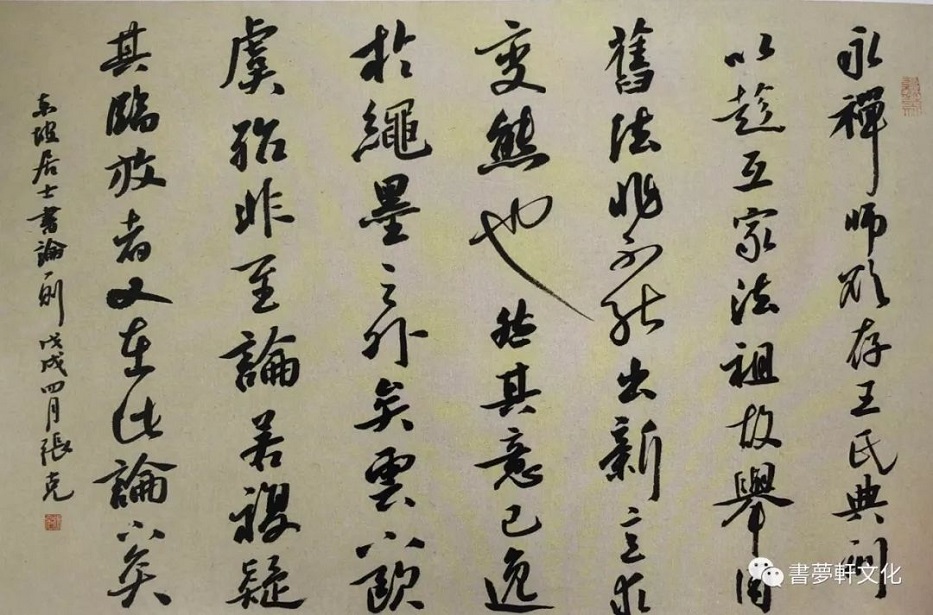 永禪師欲存王氏典刑
以為百家法祖故舉用
舊法非不能出新意求
變態也然其意已逸
於繩墨之外矣雲下歐
虞殆非至論若複疑
其臨放者又在此論下矣
東坡居士書論一則 戊戌四月張克
書夢軒文化